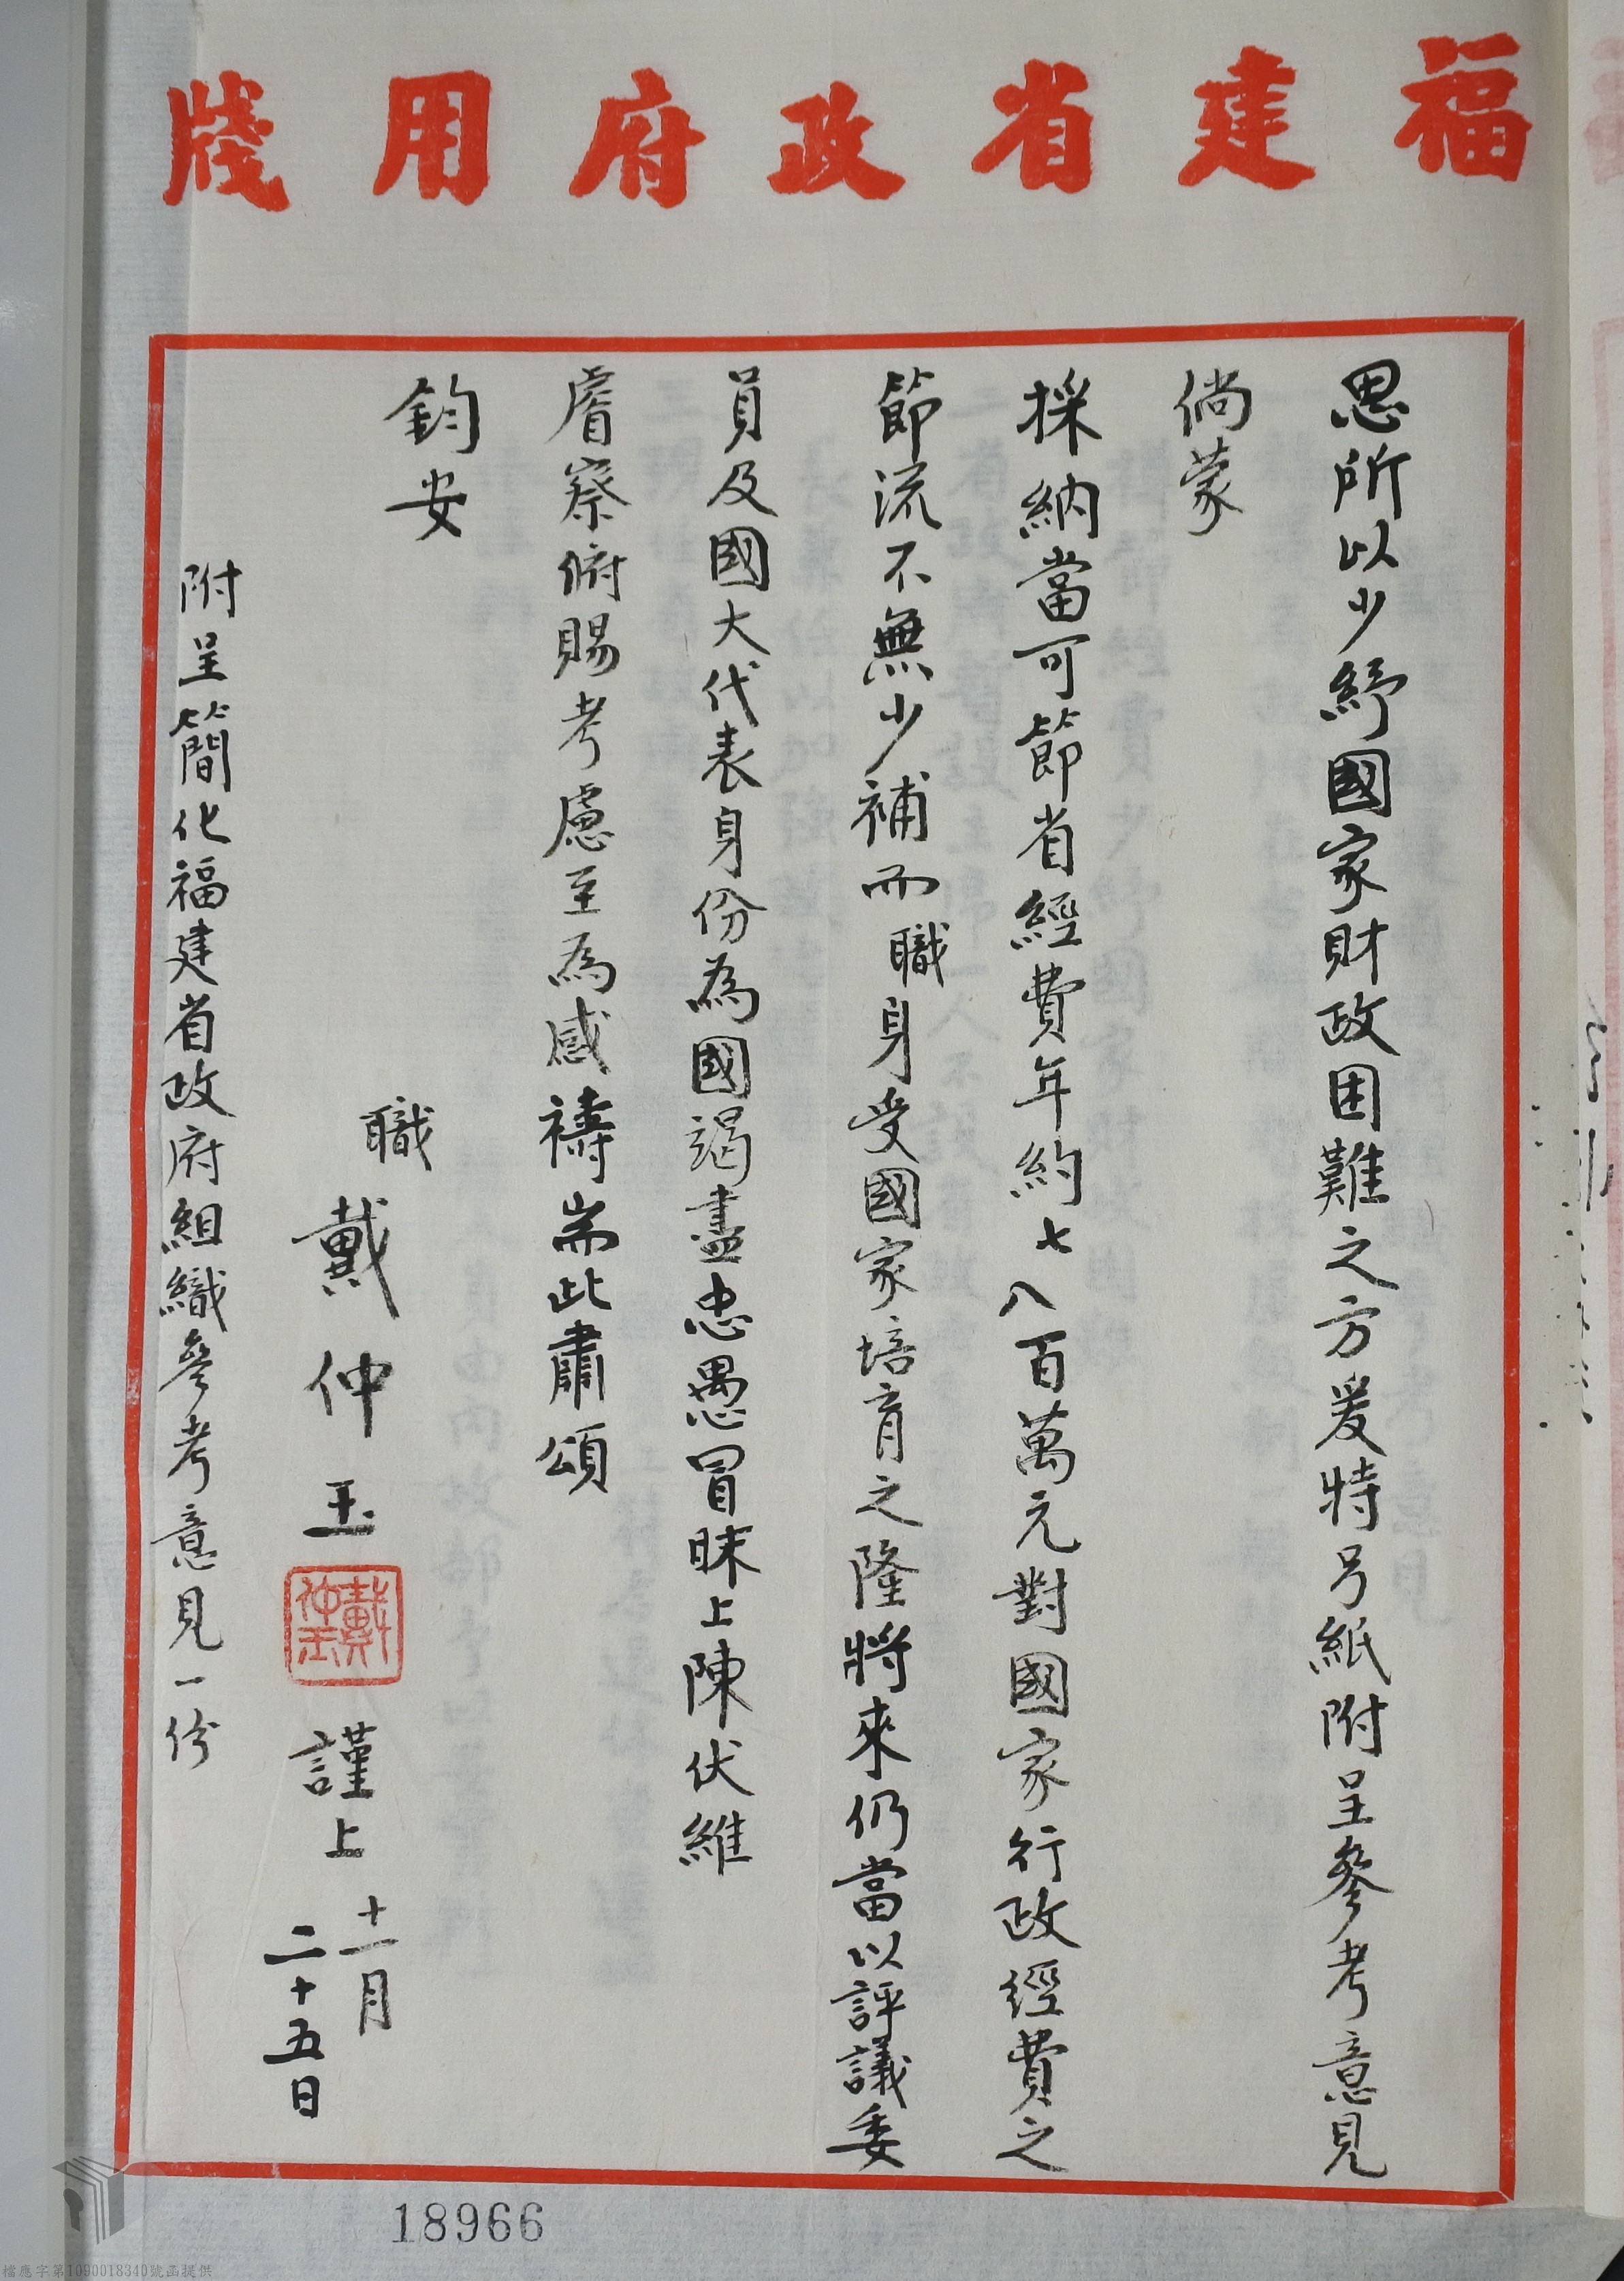 福建省政府用牋
思所以少紓國家財政困難之方爰特另紙附呈參考意見
倘蒙
採納當可節省經費年約七八百萬元對國家行政經費之
節流不無少補而職身受國家培育之隆將來仍當以評議委
員及國大代表身份為國竭盡忠愚冒昧上陳伏維
睿察俯賜考慮至為感禱耑此肅頌
鈞安
職戴仲玉
戴仲玉
謹上
十一月
二十五日
附呈簡化福建省政府組織參考意見一份
18966
檔應字第1090018340號函提供